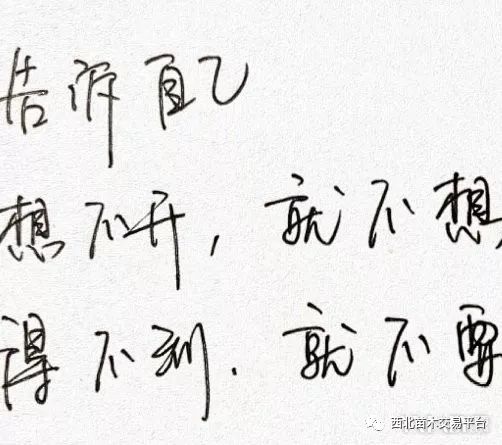 告诉自己
想不开，就不想
得不到.就不要
西北苗木交易平台